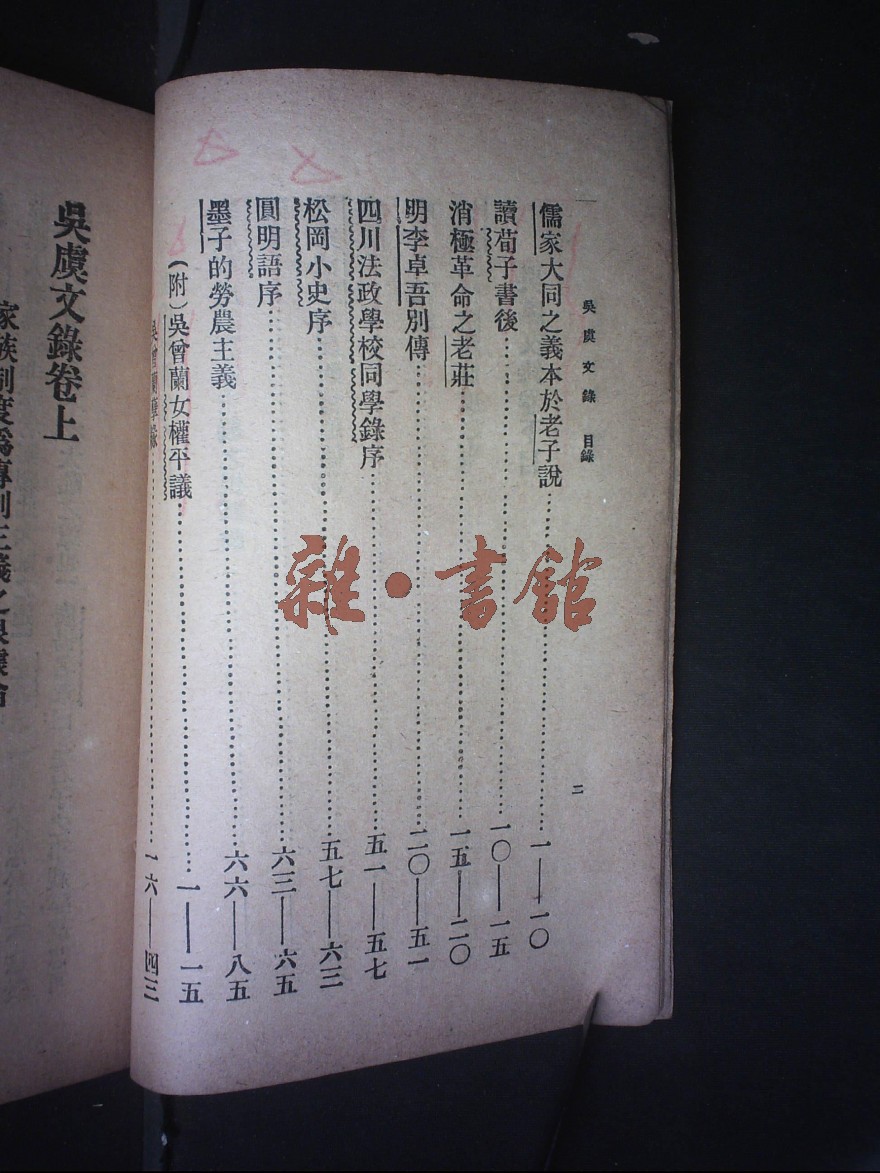 吳虞文錄 目錄 二
儒家大同之義本於老子說……一——一〇
讀荀子書後……一〇——一五
消極革命之老莊……一五——二〇
明李卓吾別傳……二〇——五一
四川法政學校同學錄序……五一——五七
松岡小史序……五七——六三
圓明語序……六三——六五
墨子的勞農主義……六六——八五
(附)吳曾蘭女權平議……一——一五
吳曾蘭……一六——四三
吳虞文錄卷上
家族制度爲專制主義之根據論
雜·書館